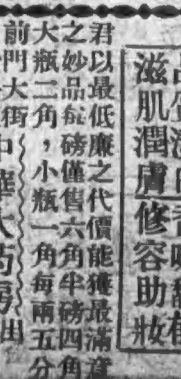 滋肌潤膚 修容助妝
君以最低廉之代價能獲最滿意
之妙品每磅僅售六角半磅四角
大瓶二角，小瓶一角每兩五分
前門大街中華大藥房出